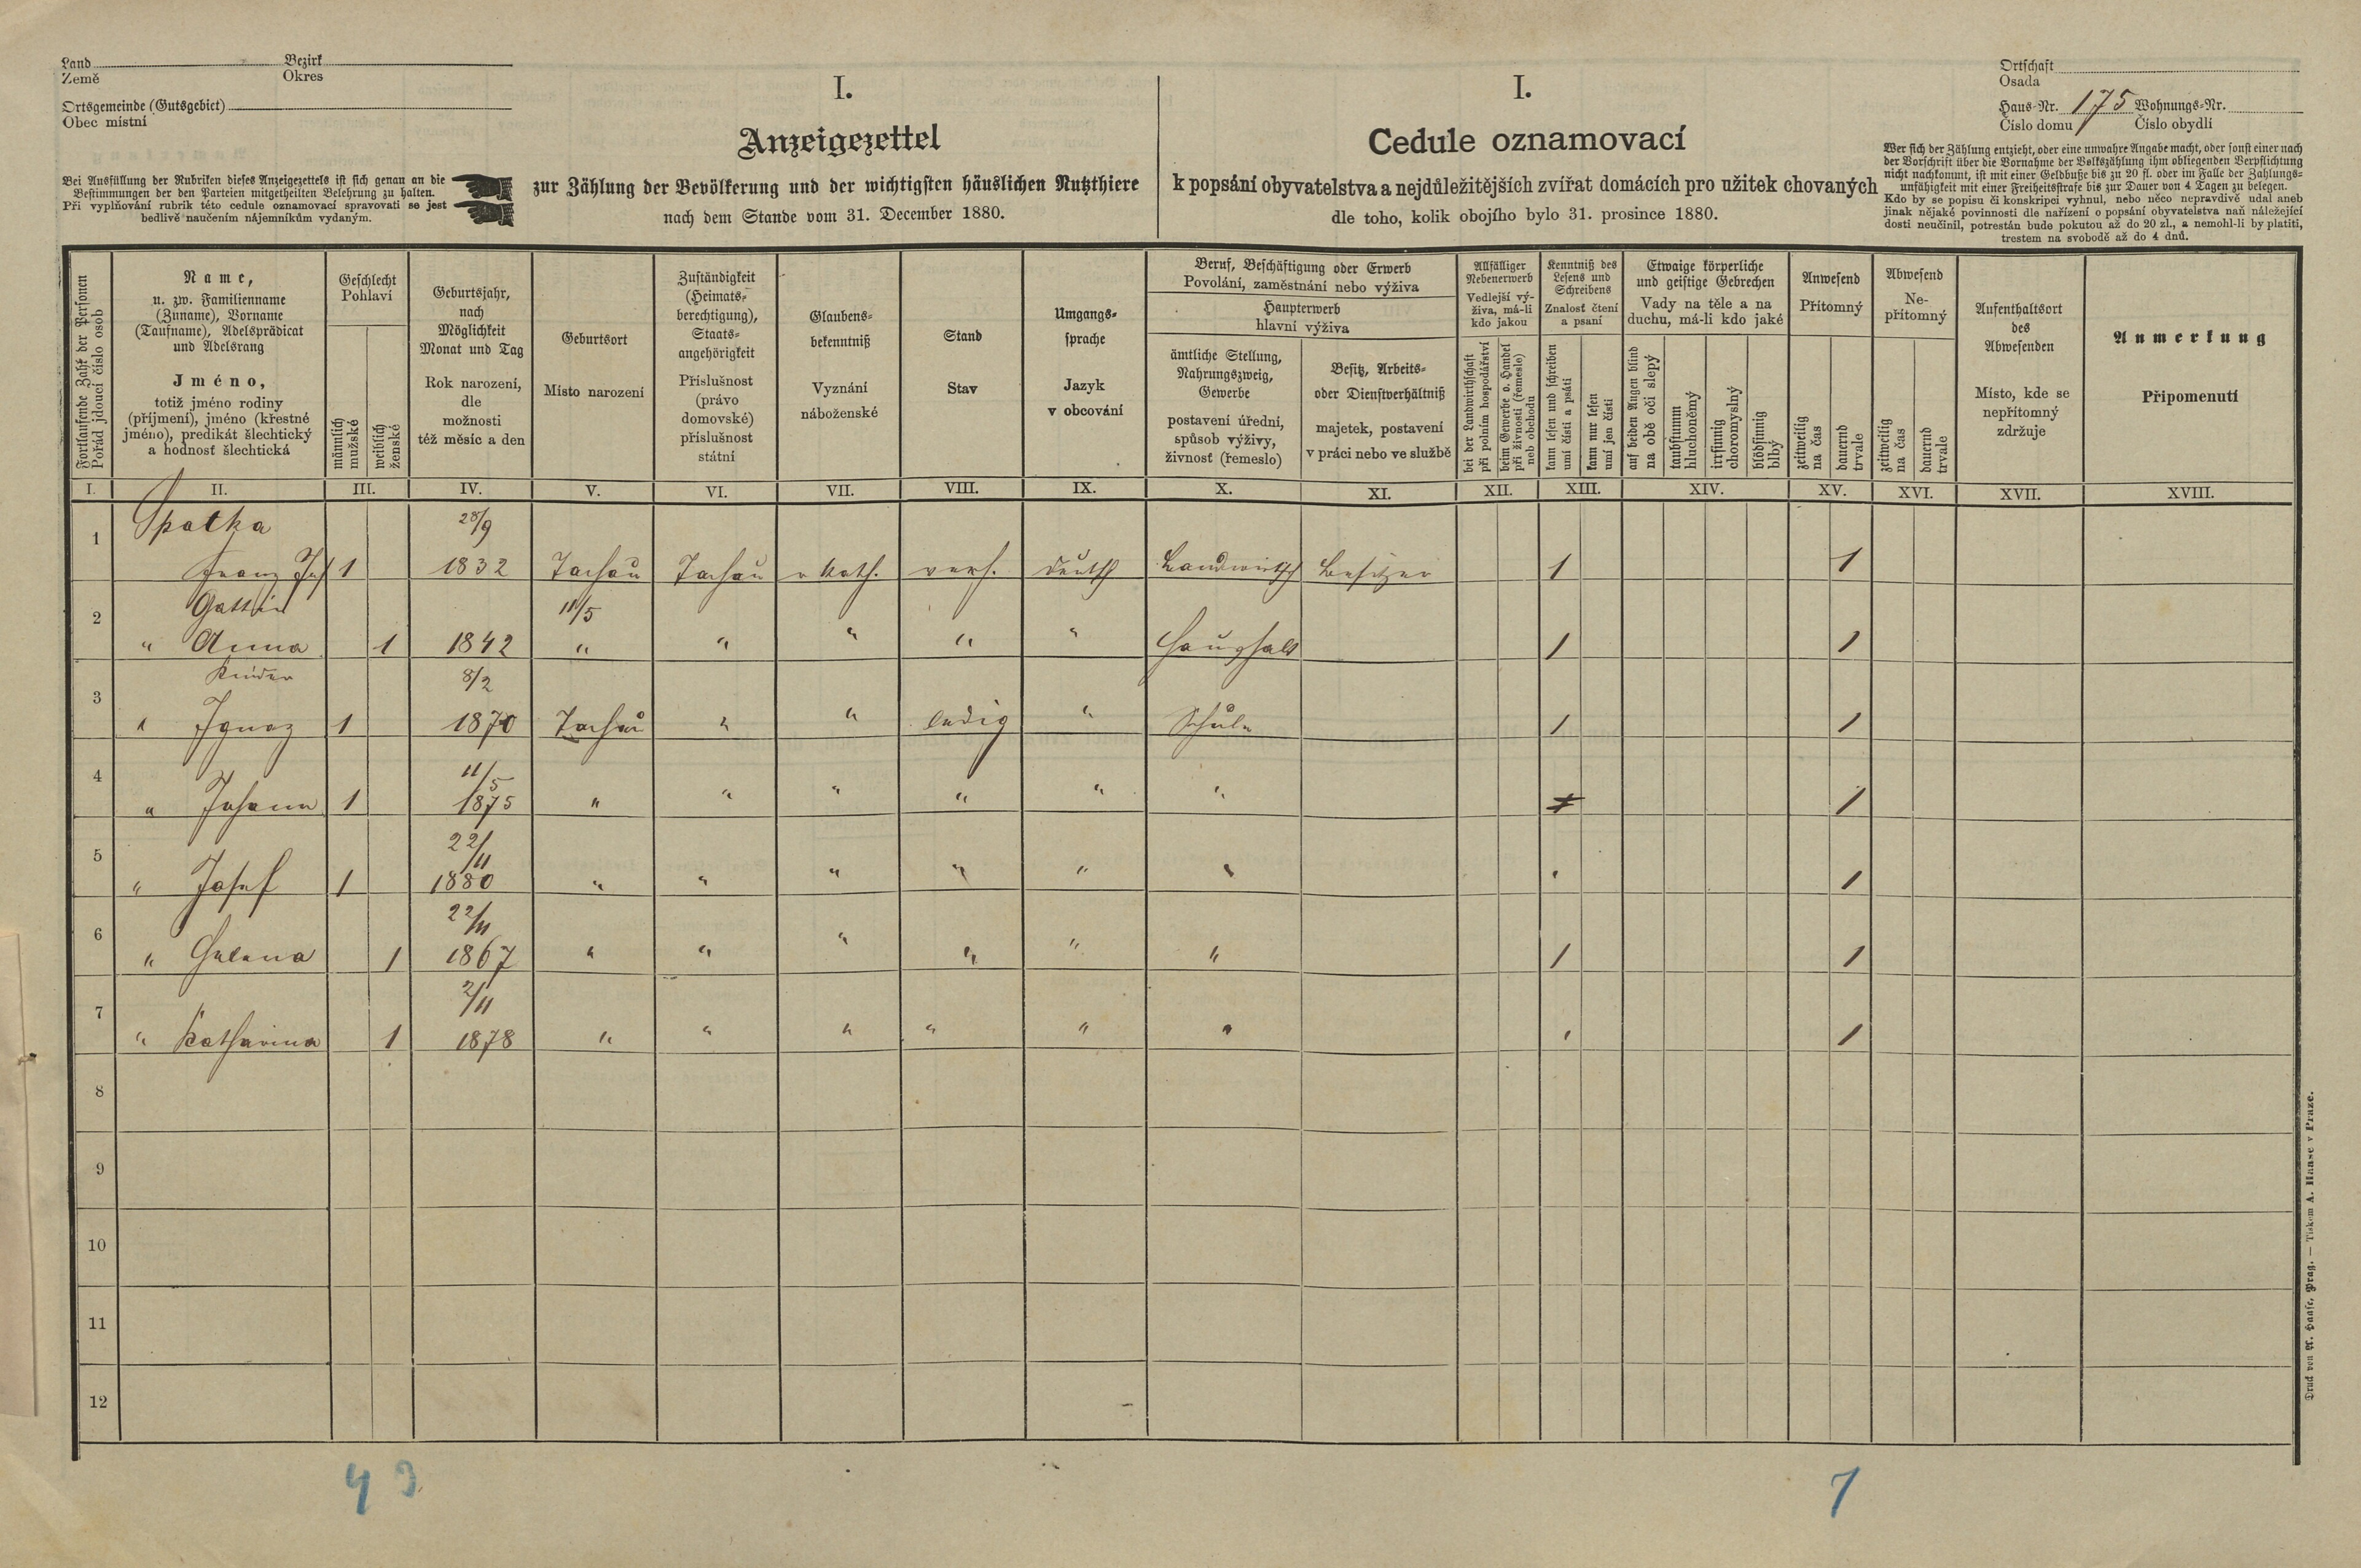 Land Bezirk
Země Okres
Ortsgemeinde (Gutsgebiet)
Obec místní
Bei Ausfüllung der Rubriken dieses Anzeigezettels ist sich genau an die
Bestimmungen der den Parteien mitgetheilten Belehrung zu halten.
Při vyplňování rubrik této cedule oznamovací spravovati se jest
bedlivě naučením nájemníkům vydaným.
I.
Anzeigezettel
zur Zählung der Bevölkerung und der wichtigsten häuslichen Nutzthiere
nach dem Stande vom 31. December 1880.
I.
Cedule oznamovací
k popsání obyvatelstva a nejdůležitějších zvířat domácích pro užitek chovaných
dle toho, kolik obojího bylo 31. prosince 1880.
Ortschaft
Osada
Haus-Nr. 175 Wohnungs-Nr.
Číslo domu Číslo obydlí
Wer sich der Zählung entzieht, oder eine unwahre Angabe macht, oder sonst einer nach
der Vorschrift über die Vornahme der Volkszählung ihm obliegenden Verpflichtung
nicht nachkommt, ist mit einer Geldbuße bis zu 20 fl. oder im Falle der Zahlungs-
unfähigkeit mit einer Freiheitsstrafe bis zur Dauer von 4 Tagen zu belegen.
Kdo by se popisu či konskripci vyhnul, nebo něco nepravdivě udal aneb
jinak nějaké povinnosti dle nařízení o popsání obyvatelstva naň náležející
dosti neučinil, potrestán bude pokutou až do 20 zl., a nemohl-li by platiti,
trestem na svobodě až do 4 dnů.
Fortlaufende Zahl der Personen
Pořád jdoucí číslo osob
Name,
u. zw. Familienname
(Zuname), Vorname
(Taufname), Adelsprädicat
und Adelsrang
Jméno,
totiž jméno rodiny
(příjmení), jméno (křestné
jméno), predikát šlechtický
a hodnosť šlechtická
Geschlecht
Pohlaví
männlich
mužské
weiblich
ženské
Geburtsjahr,
nach
Möglichkeit
Monat und Tag
Rok narození,
dle
možnosti
též měsíc a den
Geburtsort
Místo narození
Zuständigkeit
(Heimats-
berechtigung),
Staats-
angehörigkeit
Příslušnost
(právo
domovské)
příslušnost
státní
Glaubens-
bekenntniß
Vyznání
náboženské
Stand
Stav
Umgangs-
sprache
Jazyk
v obcování
Beruf, Beschäftigung oder Erwerb
Povolání, zaměstnání nebo výživa
Haupterwerb
hlavní výživa
ämtliche Stellung,
Nahrungszweig,
Gewerbe
postavení úřední,
spůsob výživy,
živnosť (řemeslo)
Besitz, Arbeits-
oder Dienstverhältniß
majetek, postavení
v práci nebo ve službě
Allfälliger
Nebenerwerb
Vedlejší vý-
živa, má-li
kdo jakou
bei der Landwirthschaft
při polním hospodářství
beim Gewerbe o. Handel
při živnosti (řemeslo)
neb obchodu
Kenntniß des
Lesens und
Schreibens
Znalosť čtení
a psaní
kann lesen und schreiben
umí čísti a psáti
kann nur lesen
umí jen čísti
Etwaige körperliche
und geistige Gebrechen
Vady na těle a na
duchu, má-li kdo jaké
auf beiden Augen blind
na obě oči slepý
taubstumm
hluchoněmý
irrsinnig
choromyslný
blödsinnig
blbý
Anwesend
Přítomný
zeitweilig
na čas
dauernd
trvale
Abwesend
Ne-
přítomný
zeitweilig
na čas
dauernd
trvale
Aufenthaltsort
des
Abwesenden
Místo, kde se
nepřítomný
zdržuje
Anmerkung
Připomenutí
I. II. III. IV. V. VI. VII. VIII. IX. X. XI. XII. XIII. XIV. XV. XVI. XVII. XVIII.
1 Spatka 28/9
Franz Jos 1 1832 Tachau Tachau r kath. verh. deutsch Landwirth Besitzer 1 1
2 Gattin 11/5
" Anna 1 1842 " " " " " Haushalt 1 1
3 Kinder 8/2
" Ignaz 1 1870 Tachau " " ledig " Schule 1 1
4 11/5
" Johann 1 1875 " " " " " " 1
5 22/11
" Josef 1 1880 " " " " " " 1
6 22/11
" Helena 1 1867 " " " " " " 1 1
7 2/11
" Katharina 1 1878 " " " " " " 1
8
9
10
11
12
4 3 7
Druck von A. Haase, Prag. — Tiskem A. Haase v Praze.